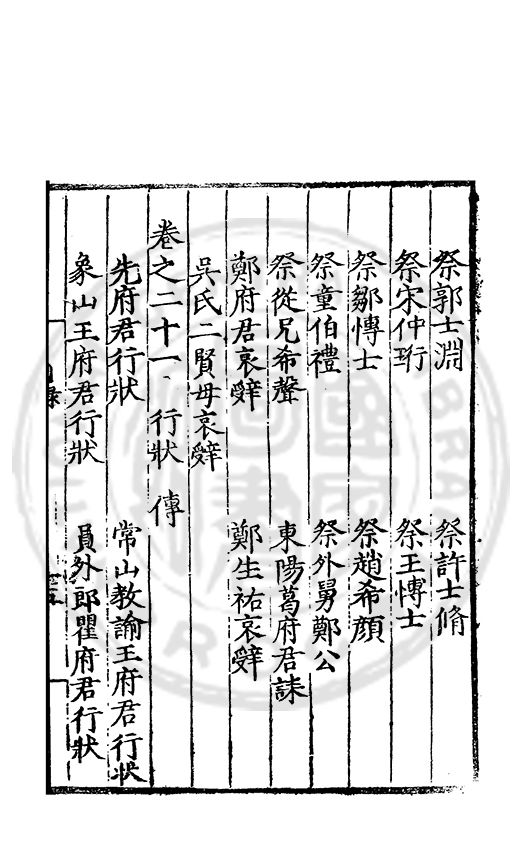 祭郭士淵　祭許士脩
祭宋仲珩　祭王博士
祭鄒博士　祭趙希顔
祭童伯禮　祭外舅鄭公
祭從兄希聲　東陽葛府君誄
鄭府君哀辭　鄭生祐哀辭
吳氏二賢母哀辭
卷之二十一　行狀　傳
先府君行狀　常山教諭王府君行狀
象山王府君行狀　員外郎瞿府君行狀